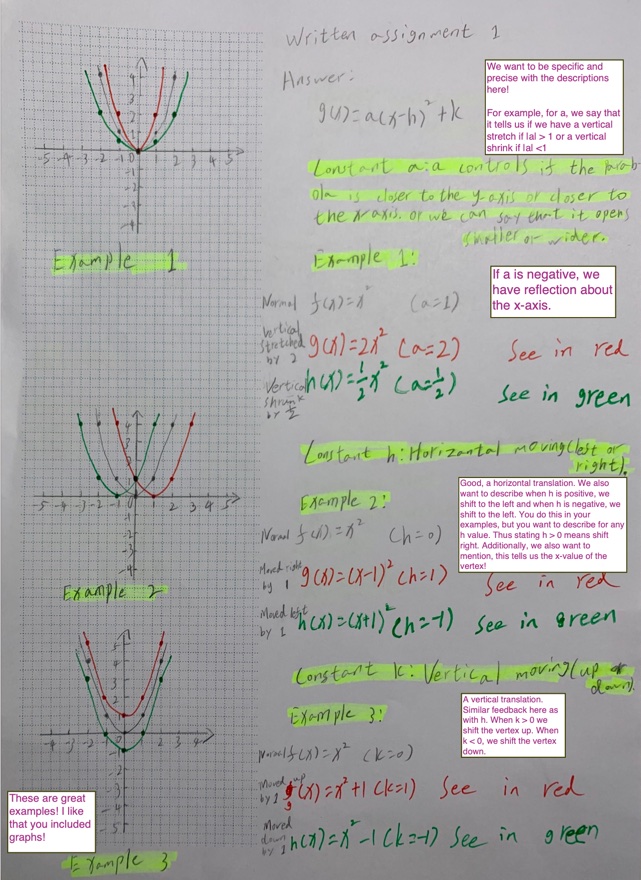 Written assignment 1
Answer:
g(x)=a(x-h)²+k
We want to be specific and
precise with the descriptions
here!
For example, for a, we say that
it tells us if we have a vertical
stretch if |a| > 1 or a vertical
shrink if |a| <1
Constant a: a controls if the parab-
ola is closer to the y-axis or closer to
the x axis. or we can say that it opens
smaller or wider.
Example 1
Example 1:
If a is negative, we
have reflection about
the x-axis.
Normal f(x)=x² (a=1)
Vertical
stretched
by 2
g(x)=2x² (a=2) See in red
Vertical
shrunk
by 1/2
h(x)=1/2x² (a=1/2) See in green
Constant h: Horizontal moving(left or
right).
Good, a horizontal translation. We also
want to describe when h is positive, we
shift to the left and when h is negative, we
shift to the left. You do this in your
examples, but you want to describe for any
h value. Thus stating h > 0 means shift
right. Additionally, we also want to
mention, this tells us the x-value of the
vertex!
Example 2:
Normal f(x)=x² (h=0)
Moved right
by 1
g(x)=(x-1)² (h=1) See in red
Example 2
Moved left
by 1
h(x)=(x+1)² (h=-1) See in green
Constant k: Vertical moving(up or
down)
A vertical translation.
Similar feedback here as
with h. When k > 0 we
shift the vertex up. When
k < 0, we shift the vertex
down.
Example 3:
Normal f(x)=x² (k=0)
Moved up
by 1
g(x)=x²+1 (k=1) See in red
Moved
down
by 1
h(x)=x²-1 (k=-1) See in green
These are great
examples! I like
that you included
graphs!
Example 3